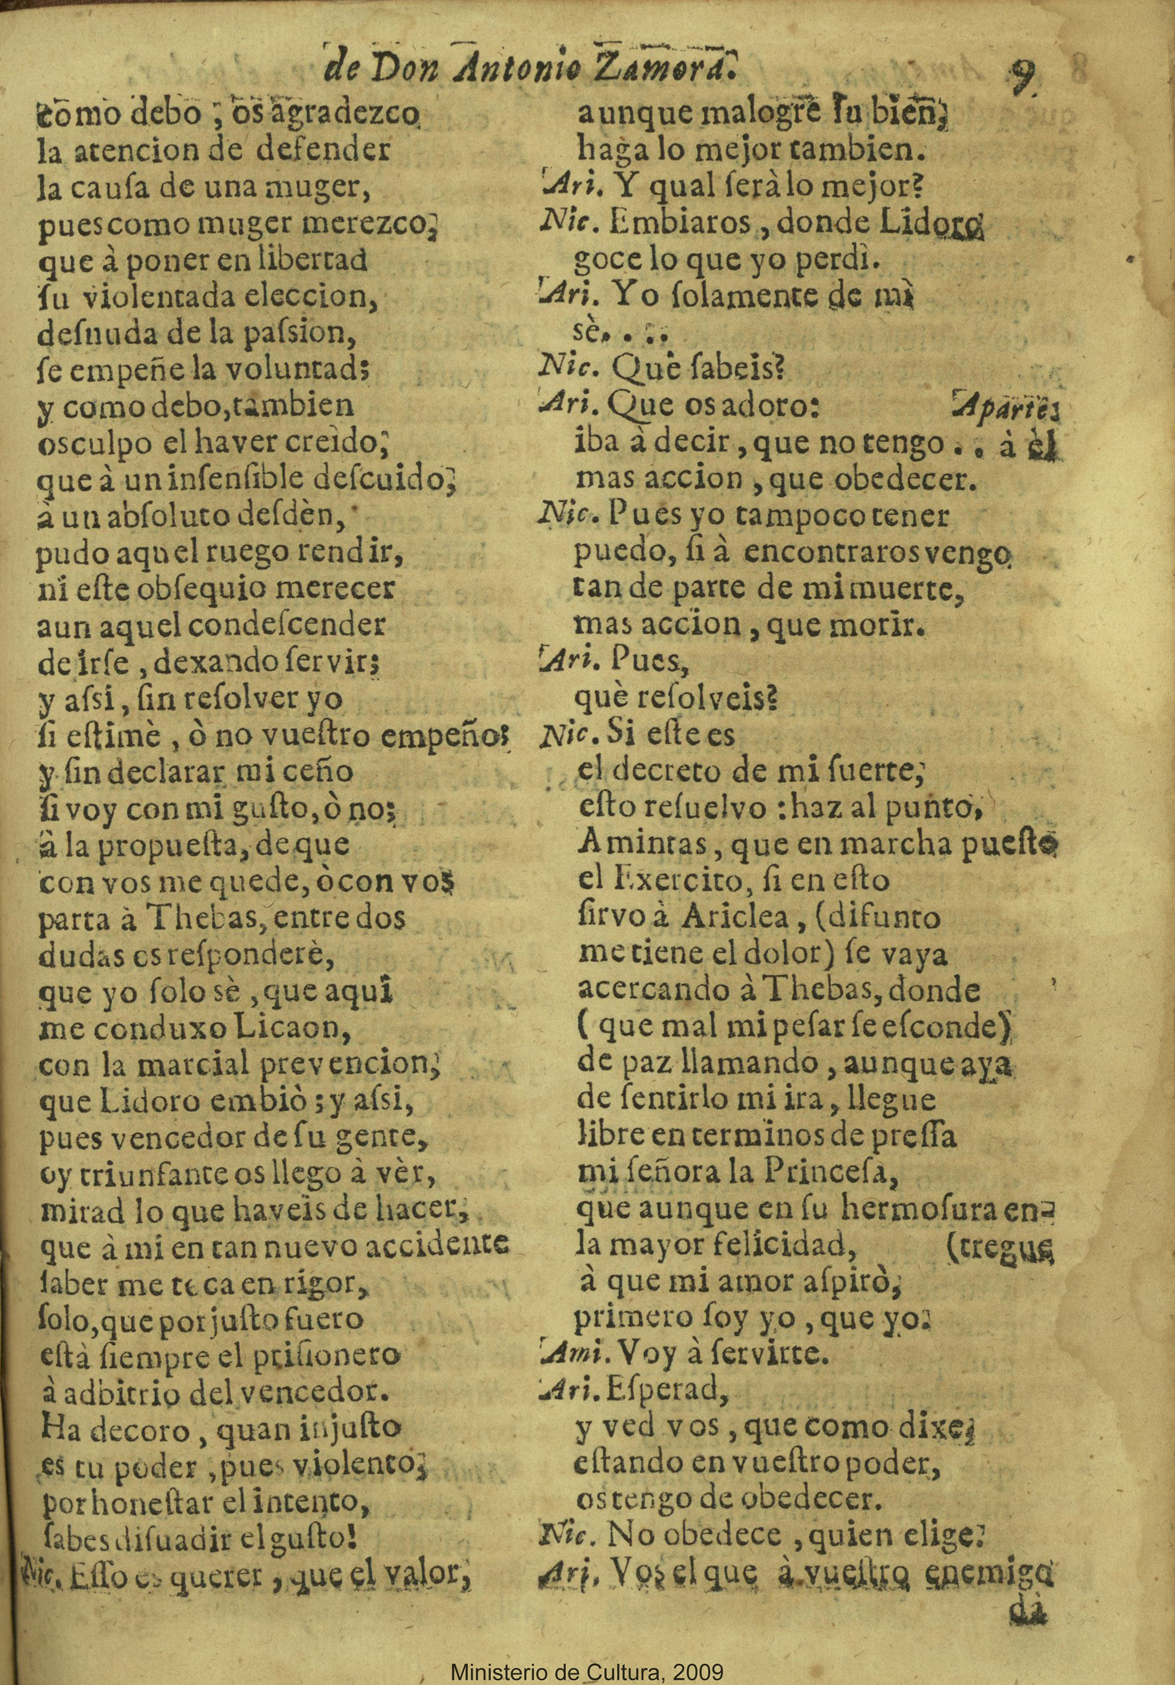 de Don Antonio Zamora.
9
como debo, os agradezco
la atencion de defender
la cauſa de una muger,
pues como muger merezco,
que à poner en libertad
ſu violentada eleccion,
deſnuda de la paſsion,
ſe empeñe la voluntad;
y como debo, tambien
os culpo el haver creìdo,
que à un inſenſible deſcuido,
à un abſoluto deſdèn,
pudo aquel ruego rendir,
ni eſte obſequio merecer
aun aquel condeſcender
de irſe, dexando ſervir;
y aſsi, ſin reſolver yo
ſi eſtimè, ò no vueſtro empeño:
y ſin declarar mi ceño
ſi voy con mi guſto, ò no;
à la propueſta, de que
con vos me quede, ò con vos
parta à Thebas, entre dos
dudas os reſponderè,
que yo ſolo sè, que aqui
me conduxo Licaon,
con la marcial prevencion,
que Lidoro embiò; y aſsi,
pues vencedor de ſu gente,
oy triunfante os llego à vèr,
mirad lo que haveis de hacer,
que à mi en tan nuevo accidente
ſaber me toca en rigor,
ſolo, que por juſto fuero
eſtà ſiempre el priſionero
à adbitrio del vencedor.
Ha decoro, quan injuſto
es tu poder, pues violento,
por honeſtar el intento,
ſabes diſuadir el guſto!
Nic. Eſſo es querer, que el valor,
aunque malogre ſu bien,
haga lo mejor tambien.
Ari. Y qual ſerà lo mejor?
Nic. Embiaros, donde Lidoro
goce lo que yo perdì.
Ari. Yo ſolamente de mì
sè. . . .
Nic. Què ſabeis?
Ari. Que os adoro: Aparte.
iba à decir, que no tengo . . à èl
mas accion, que obedecer.
Nic. Pues yo tampoco tener
puedo, ſi à encontraros vengo
tan de parte de mi muerte,
mas accion, que morir.
Ari. Pues,
què reſolveis?
Nic. Si eſte es
el decreto de mi ſuerte,
eſto reſuelvo: haz al punto,
Amintas, que en marcha pueſto
el Exercito, ſi en eſto
ſirvo à Ariclea, (difunto
me tiene el dolor) ſe vaya
acercando à Thebas, donde
( que mal mi peſar ſe eſconde)
de paz llamando, aunque aya
de ſentirlo mi ira, llegue
libre en terminos de preſſa
mi ſeñora la Princeſa,
que aunque en ſu hermoſura en-
la mayor felicidad, (tregue
à que mi amor aſpirò,
primero ſoy yo, que yo.
Ami. Voy à ſervirte.
Ari. Eſperad,
y ved vos, que como dixe,
eſtando en vueſtro poder,
os tengo de obedecer.
Nic. No obedece, quien elige.
Ari. Vos el que à vueſtro enemigo
dà
Ministerio de Cultura, 2009